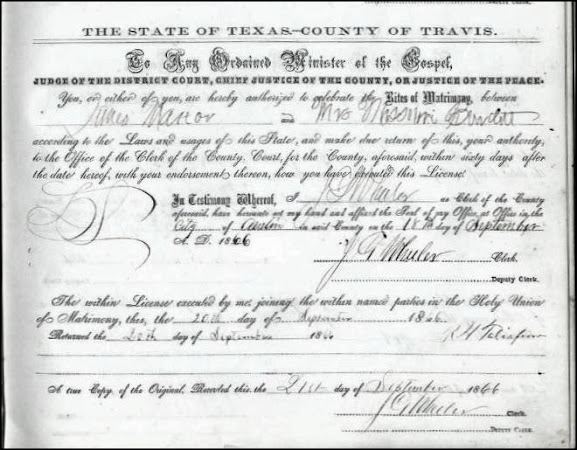 THE STATE OF TEXAS—COUNTY OF TRAVIS.
To Any Ordained Minister of the Gospel,
JUDGE OF THE DISTRICT COURT, CHIEF JUSTICE OF THE COUNTY, OR JUSTICE OF THE PEACE.
You, or either of you, are hereby authorized to celebrate the Rites of Matrimony, between
James Manor and Mrs Missouri Burditt
according to the Laws and usages of this State, and make due return of this, your authority,
to the Office of the Clerk of the County Court, for the County, aforesaid, within sixty days after
the date hereof, with your endorsement thereon, how you have executed this License!
In Testimony Whereof, I J G Wheeler as Clerk of the County
aforesaid, have hereunto set my hand and affixed the Seal of my Office, at Office in the
City of Austin in said County this the 18th day of September
A. D. 1866
J G Wheeler Clerk.
Deputy Clerk.
The within License executed by me, joining the within named parties in the Holy Union
of Matrimony, this, the 20th day of September 1866.
Returned the 20th day of September 186
A true Copy of the Original, Recorded this the 21st day of September 1866
J G Wheeler Clerk.
Deputy Clerk.